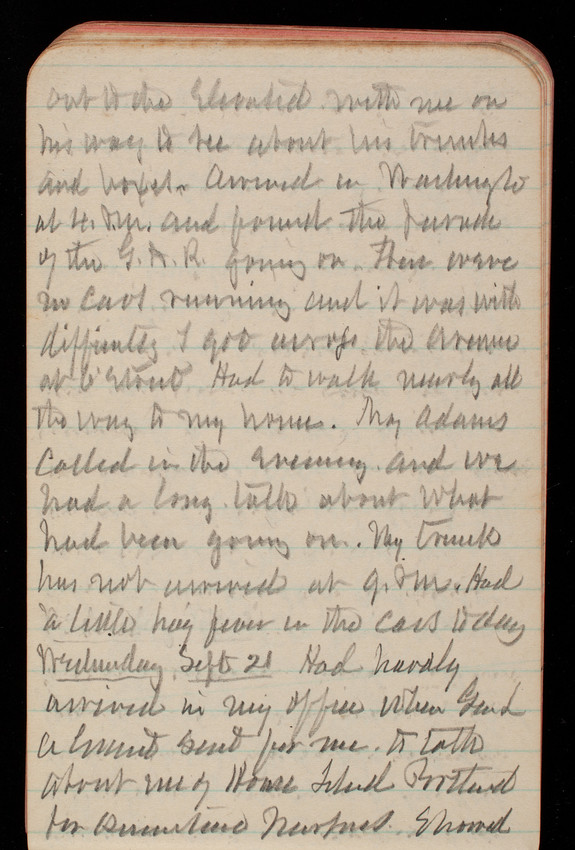 out to the Elevated with me on
his way to see about his trunks
and boxes. Arrived in Washington
at 4. P.M. and found the parade
of the G. A. R. going on. There were
no cars running and it was with
difficulty I got across the Avenue
at 6 Street Had to walk nearly all
the way to my home. Maj Adams
called in the evening and we
had a long talk about what
had been going on. My trunk
has not arrived at 9. P.M. Had
a little hay fever in the cars today
Wednesday Sept 21 Had hardly
arrived in my office when Genl
sent for me to talk
about use of House Island Portland
for Quarantine Showed